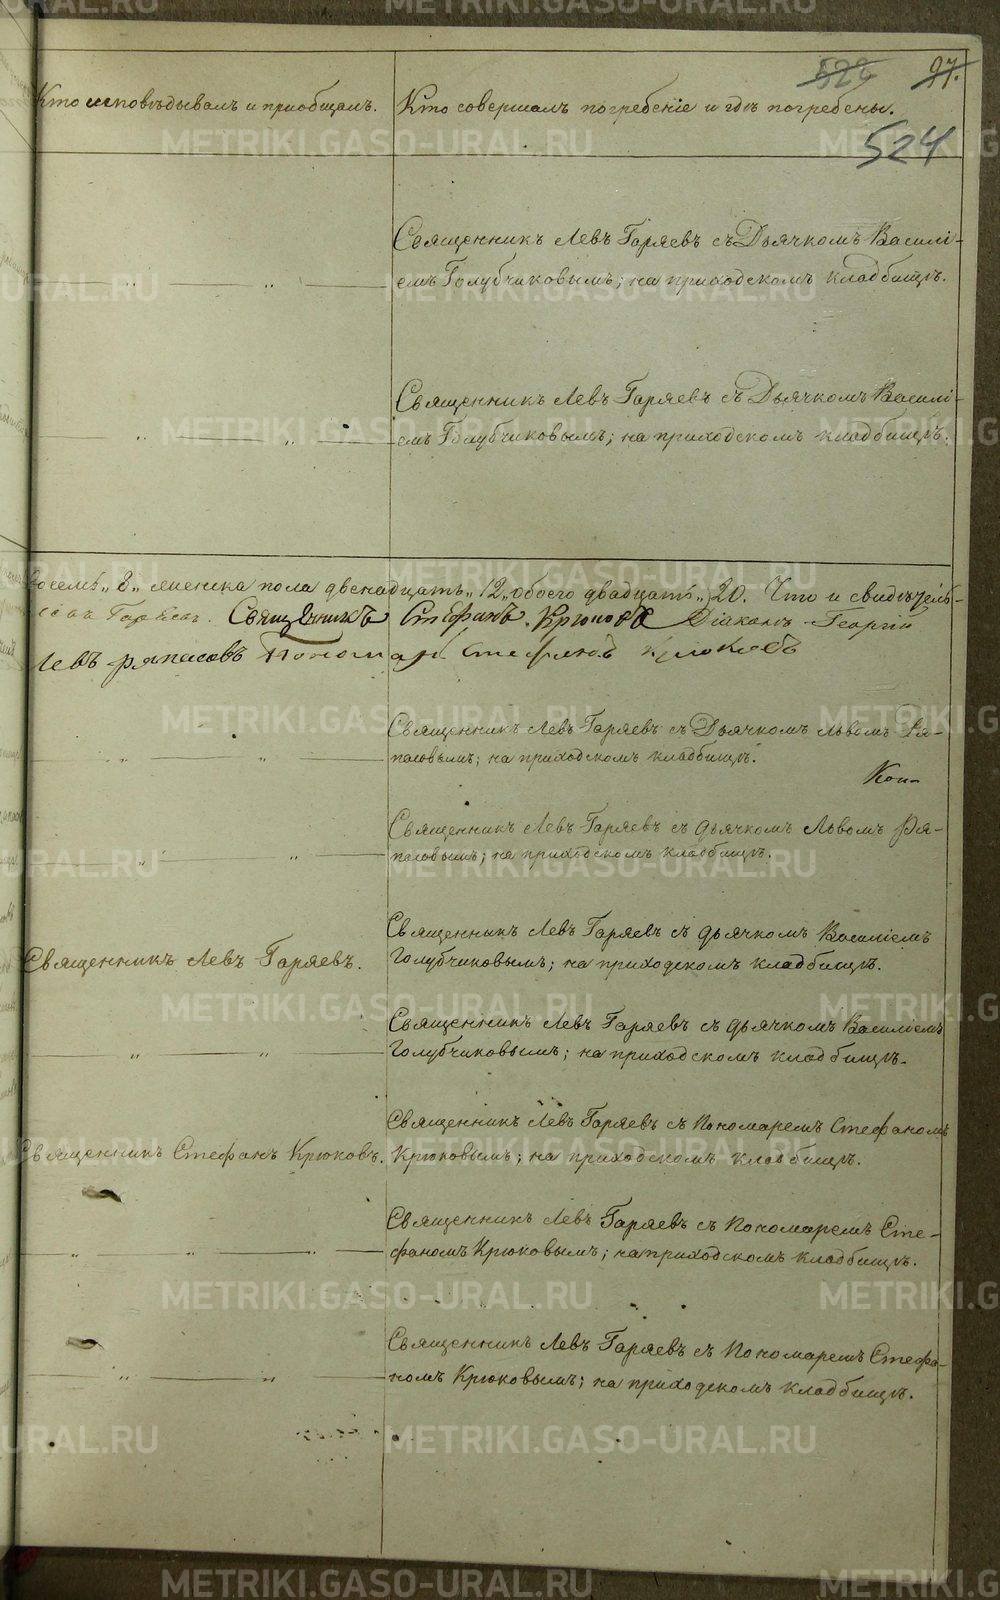 522 97.
Кто исповѣдывалъ и приобщалъ. Кто совершалъ погребеніе и гдѣ погребены.
524
Священникъ Левъ Гаряевъ съ Дьячкомъ Василі-
емъ Голубчиковымъ; на приходскомъ кладбищѣ.
Священникъ Левъ Гаряевъ съ Дьячкомъ Василі-
емъ Голубчиковымъ; на приходскомъ кладбищѣ.
восемь „8„ женска пола двенадцать „12„ обоего двадцать „20. Что и свидѣтель-
Гаряевъ. Священникъ Стефанъ Крюковъ Діаконъ Георгій
Левъ Ряпасовъ Пономарь Стефанъ Крюковъ
Священникъ Левъ Гаряевъ съ Дьячкомъ Львомъ Ря-
пасовымъ; на приходскомъ кладбищѣ.
Кон-
Священникъ Левъ Гаряевъ съ дьячкомъ Львомъ Ря-
пасовымъ; на приходскомъ кладбищѣ.
Священникъ Левъ Гаряевъ съ дьячкомъ Василіемъ
Священникъ Левъ Гаряевъ. Голубчиковымъ; на приходскомъ кладбищѣ.
Священникъ Левъ Гаряевъ съ дьячкомъ Василіемъ
Голубчиковымъ; на приходскомъ кладбищѣ.
Священникъ Левъ Гаряевъ съ Пономаремъ Стефаномъ
Священникъ Стефанъ Крюковъ. Крюковымъ; на приходскомъ кладбищѣ.
Священникъ Левъ Гаряевъ съ Пономаремъ Сте-
фаномъ Крюковымъ; на приходскомъ кладбищѣ.
Священникъ Левъ Гаряевъ съ Пономаремъ Стефа-
номъ Крюковымъ; на приходскомъ кладбищѣ.
METRIKI.GASO-URAL.RU